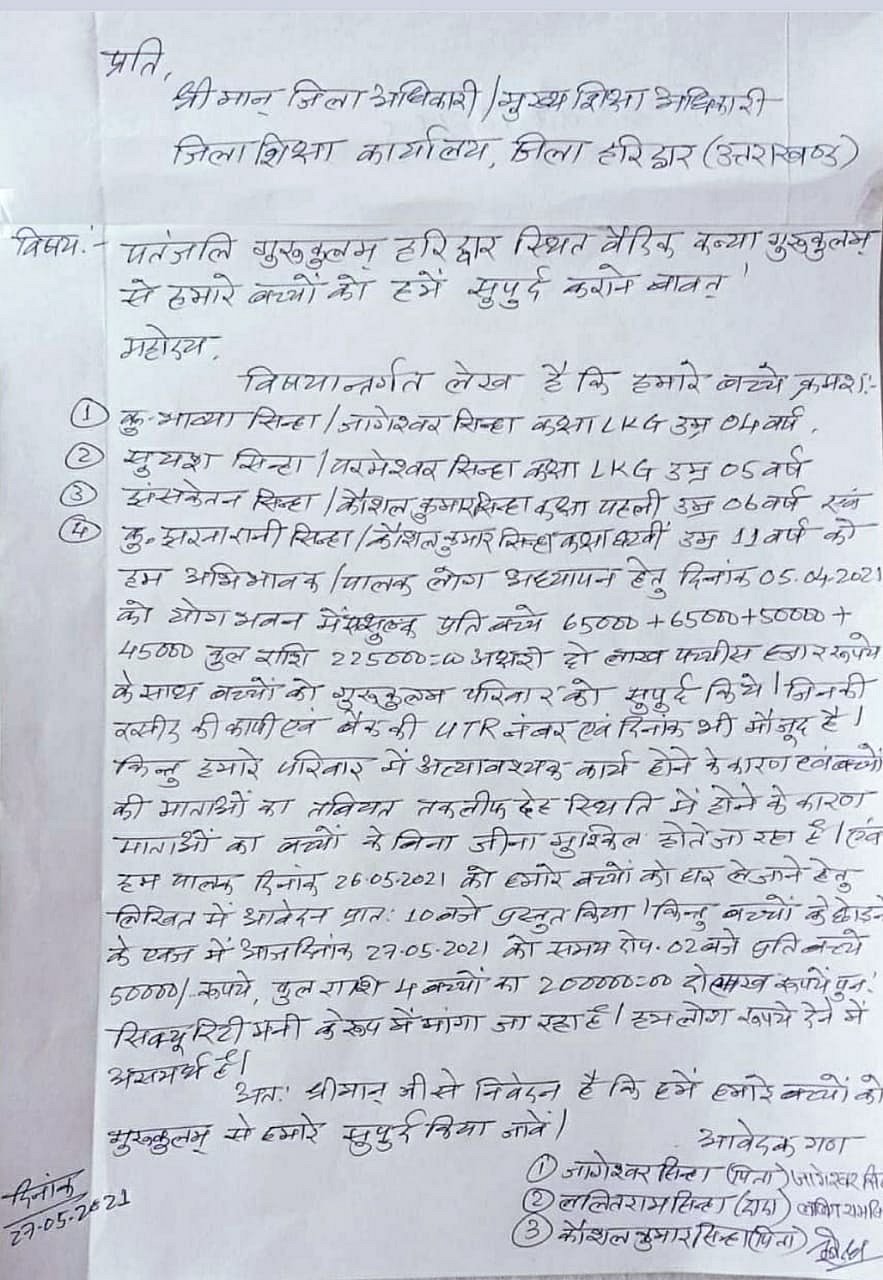 प्रति,
श्रीमान् जिला अधिकारी/मुख्य शिक्षा अधिकारी
जिला शिक्षा कार्यालय, जिला हरिद्वार (उत्तराखण्ड)
विषय:- पतंजलि गुरुकुलम् हरिद्वार स्थित वैदिक कन्या गुरुकुलम्
से हमारे बच्चों को हमें सुपुर्द कराने बावत्।
महोदय,
विषयान्तर्गत लेख है कि हमारे बच्चे क्रमश:-
① कु. भाव्या सिन्हा/जागेश्वर सिन्हा कक्षा LKG उम्र 04 वर्ष,
② सुयश सिन्हा/परमेश्वर सिन्हा कक्षा LKG उम्र 05 वर्ष
③ सिन्हा/कौशल कुमार सिन्हा कक्षा पहली उम्र 06 वर्ष एवं
④ कु. झरना रानी सिन्हा/कौशल कुमार सिन्हा कक्षा उम्र 11 वर्ष को
हम अभिभावक/पालक लोग अध्यापन हेतु दिनांक 05.04.2021
को योग भवन में प्रति बच्चे 65000+65000+50000+
45000 कुल राशि 225000=00 अक्षरी दो लाख पच्चीस हजार रूपये
के साथ बच्चों को गुरुकुलम परिवार को सुपुर्द किये। जिनकी
रसीद की कापी एवं बैंक की UTR नंबर एवं दिनांक भी मौजूद है।
किन्तु हमारे परिवार में अत्यावश्यक कार्य होने के कारण एवं बच्चों
की माताओं का तबियत तकलीफ देह स्थिति में होने के कारण
माताओं का बच्चों के बिना जीना मुश्किल होते जा रहा है। एवं
हम पालक दिनांक 26.05.2021 को हमारे बच्चों को घर ले जाने हेतु
लिखित में आवेदन प्रात: 10 बजे प्रस्तुत किया। किन्तु बच्चों के छोड़ने
के एवज में आज दिनांक 27.05.2021 को समय दोप. 02 बजे प्रति बच्चे
50000/- रूपये, कुल राशि 4 बच्चों का 200000=00 दो लाख रूपये पुन:
सिक्यूरिटी मनी के रूप में मांगा जा रहा है। हम लोग रूपये देने में
असमर्थ हैं।
अत: श्रीमान् जी से निवेदन है कि हमें हमारे बच्चों को
गुरुकुलम् से हमारे सुपुर्द किया जावें।
आवेदक गण
① जागेश्वर सिन्हा (पिता) जागेश्वर
② ललितराम सिन्हा (दादा)
③ कौशल कुमार सिन्हा (पिता)
दिनांक
27.05.2021